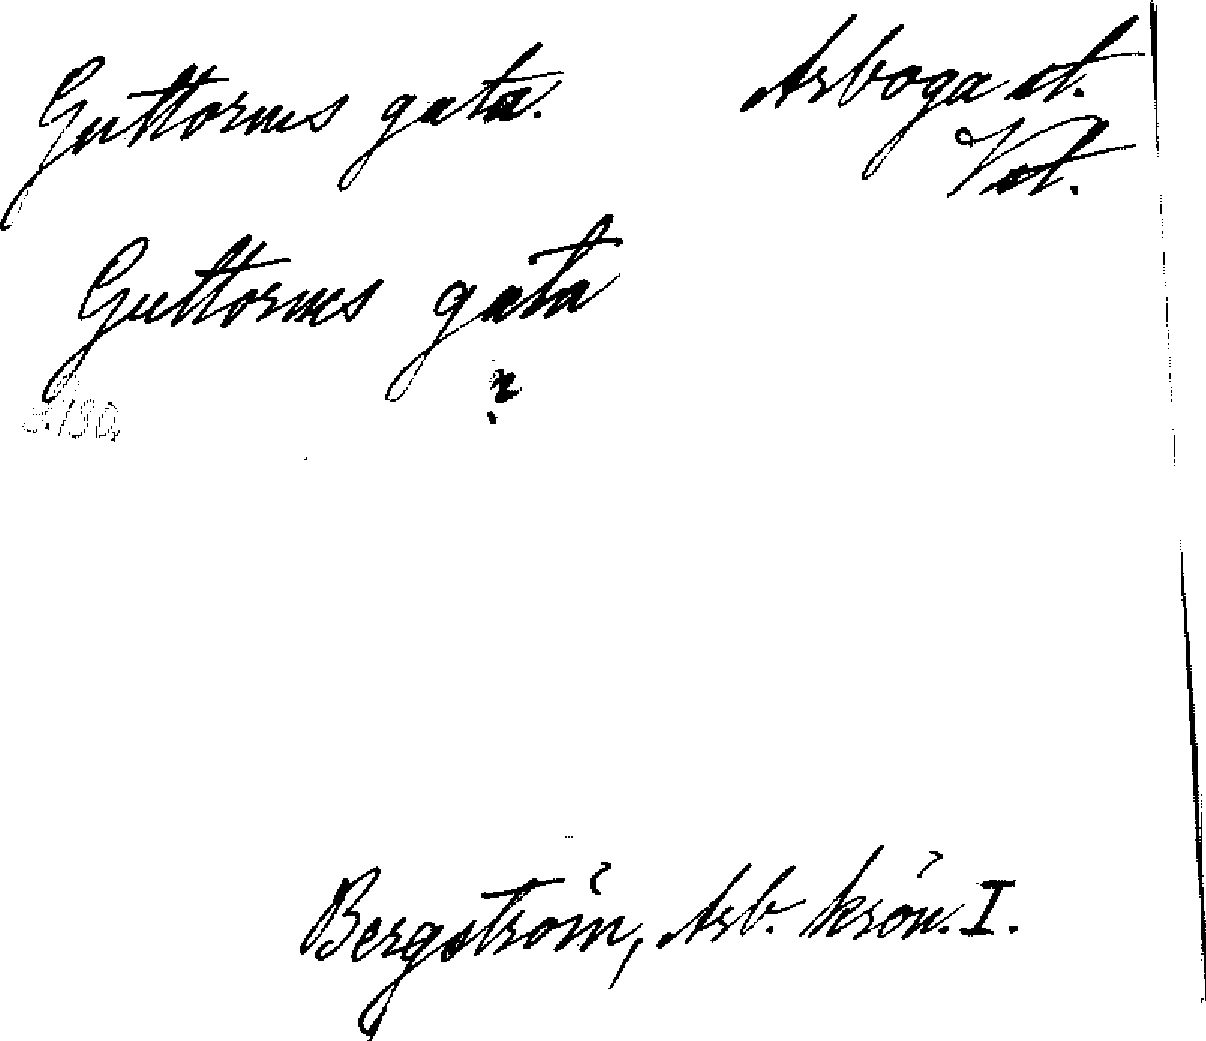 Guttorms gata. Arboga st.
Vstl.
Guttorms gata
?
Bergström, Arb. krön. I.